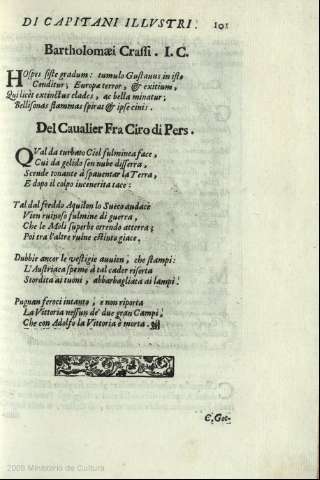 DI CAPITANI ILLVSTRI. 101
Bartholomæi Crassi. I. C.
HOspes siste gradum: tumulo Gustauus in isto
Conditur; Europæ terror, & exitium,
Qui licèt extinctus clades, ac bella minatur;
Bellisonas flammas spirat & ipse cinis.
Del Caualier Fra Ciro di Pers.
QVal da turbato Ciel fulminea face,
Cui da gelido sen nube disserra,
Scende tonante à spauentar la Terra,
E dopo il colpo incenerita tace:
Tal dal freddo Aquilon lo Sueco audace
Vien ruinoso fulmine di guerra,
Che le Moli superbe arrendo atterra;
Poi tra l'altre ruine estinto giace.
Dubbie ancor le vestigie auuien, che stampi:
L'Austriaca speme à tal cader risorta
Stordita ai tuoni, abbarbagliata ai lampi.
Pugnan feroci intanto, e non riporta
La Vittoria nessun de' due gran Campi,
Che con Adolfo la Vittoria è morta.
E, Got-
2009 Ministerio de Cultura